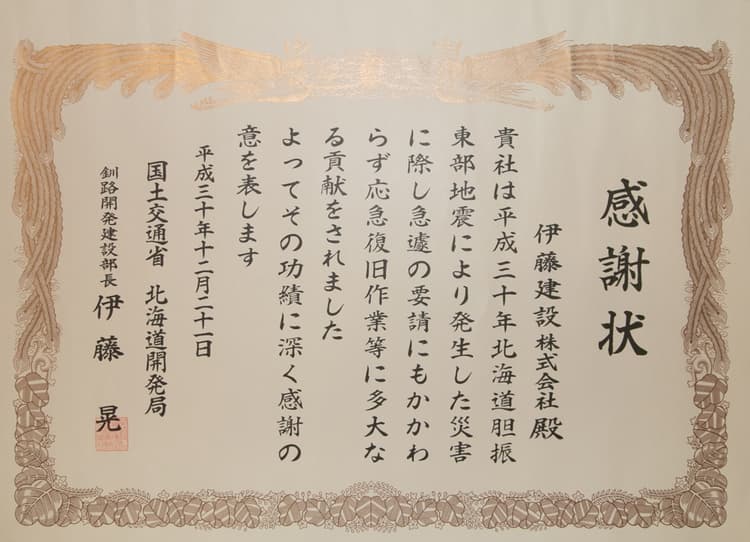 感謝状
伊藤建設株式会社 殿
貴社は平成三十年北海道胆振
東部地震により発生した災害
に際し急遽の要請にもかかわ
らず応急復旧作業等に多大な
る貢献をされました
よってその功績に深く感謝の
意を表します
平成三十年十二月二十一日
国土交通省 北海道開発局
釧路開発建設部長 伊藤 晃